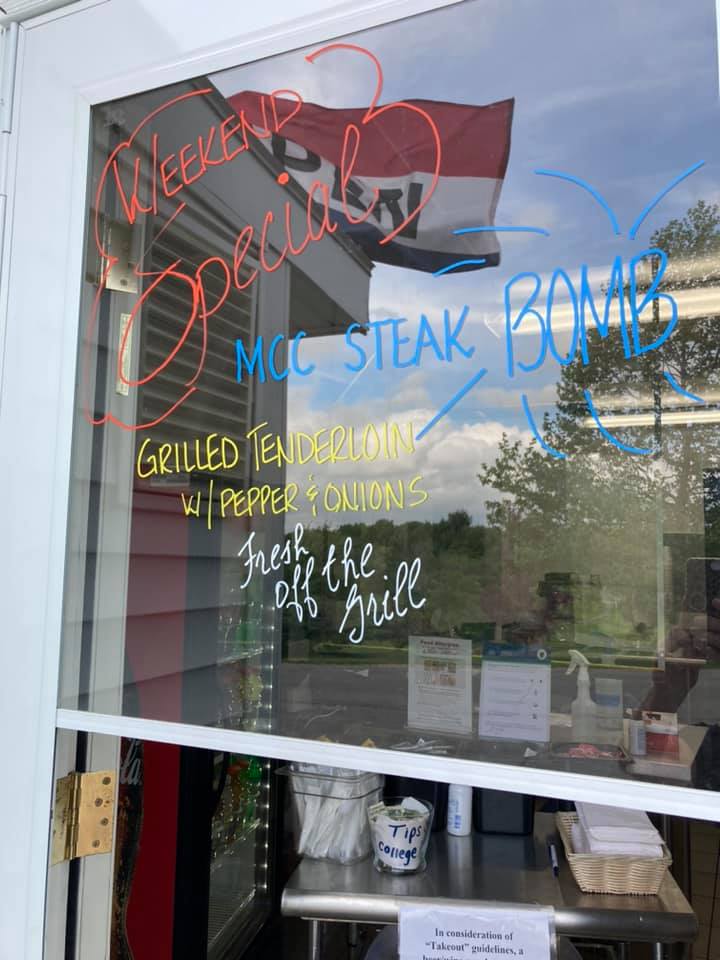 WEEKEND
Special
OPEN
MCC STEAK BOMB
GRILLED TENDERLOIN
W/ PEPPER & ONIONS
Fresh
off the
Grill
Food Allergies
Tips
college
In consideration of
"Takeout" guidelines, a